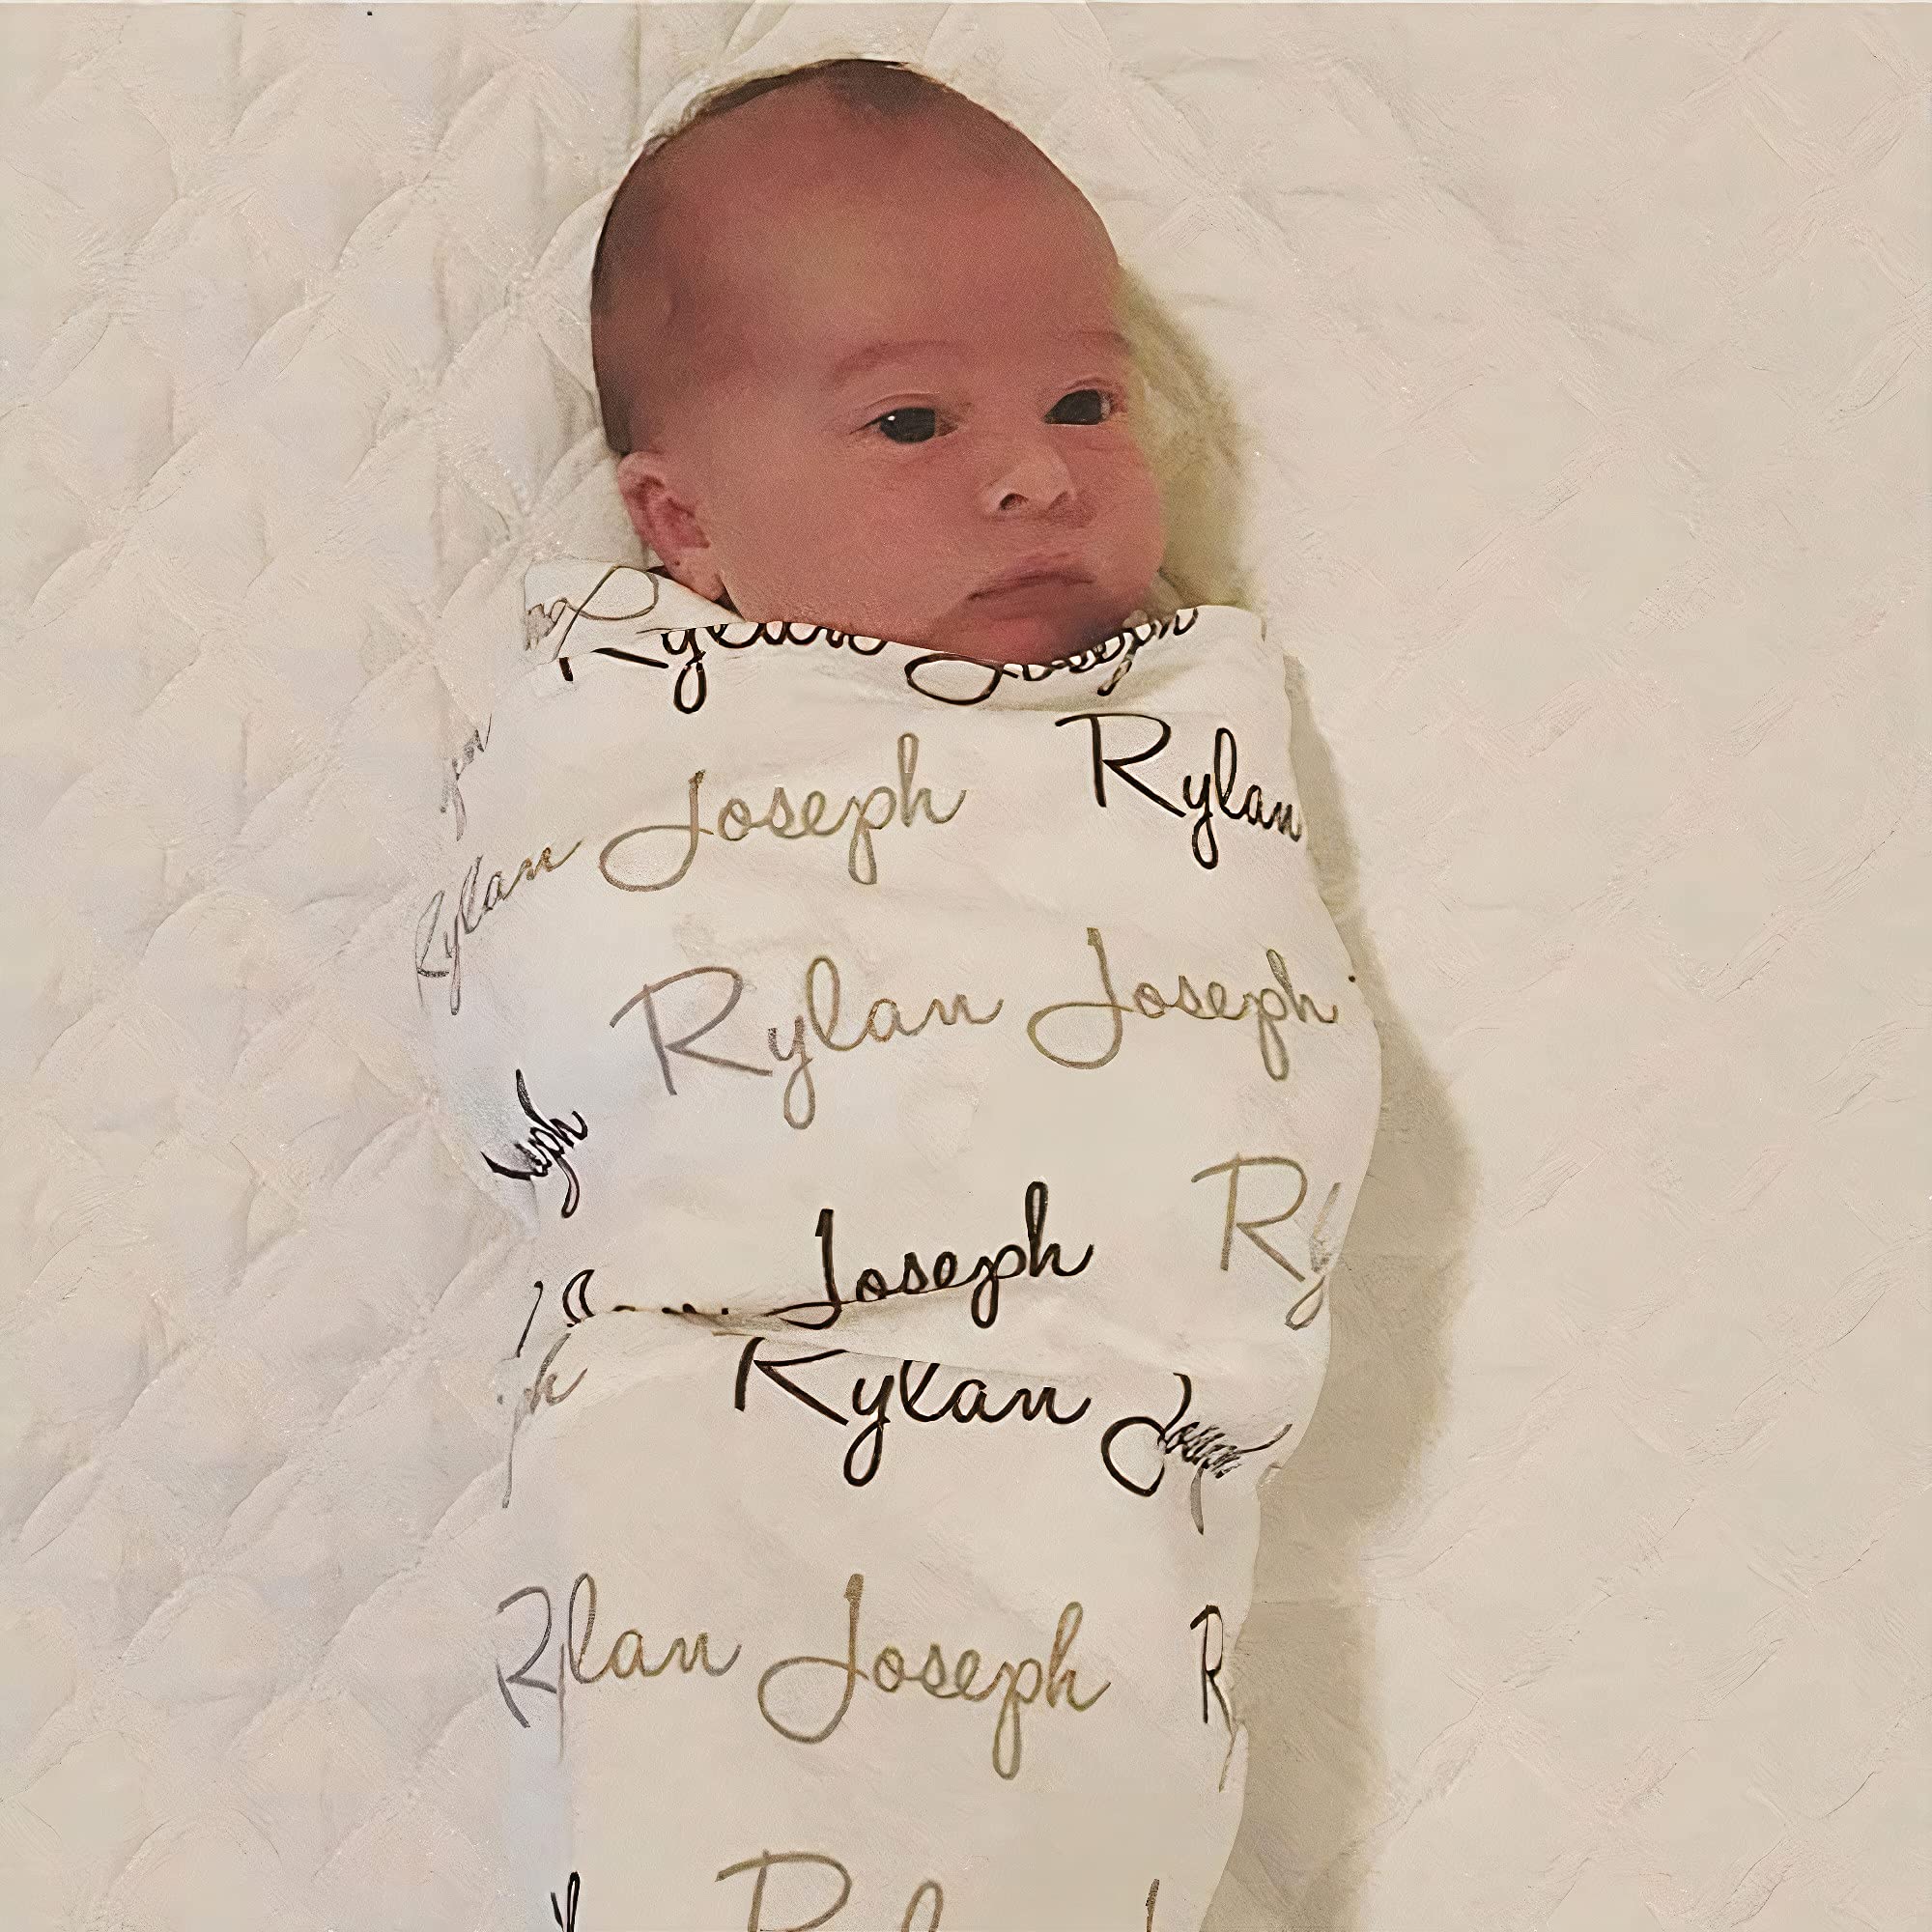 Rylan Joseph
Joseph Rylan
Rylan
Rylan Joseph
Joseph
Rylan Joseph
Rylan Joseph